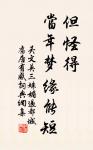 但怪得
當年夢緣能短
吳文英三姝媚過都城
舊居有感詞共调集